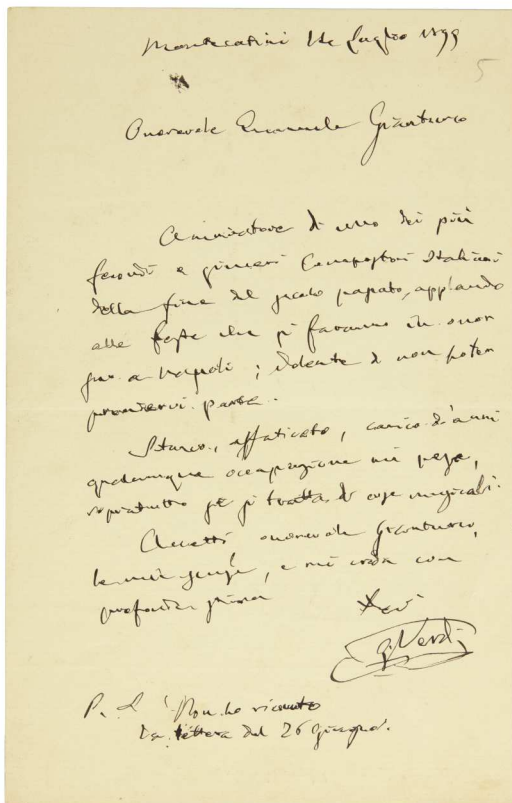 Montecatini 14 Luglio 1899
5
Onorevole Emanuele Gianturco
Ammiratore di uno dei più
fecondi e geniali Compositori Italiani
della fine del secolo passato, applaudo
alle feste che si faranno in onor
suo a Napoli; dolente di non poter
prendervi parte.
Stanco, affaticato, carico d'anni
qualunque occupazione mi pesa,
sopratutto se si tratta di cose musicali.
Accetti onorevole Gianturco,
le mie scuse, e mi creda con
profonda stima
G. Verdi
P. S. Non ho ricevuto
la lettera del 26 Giugno.